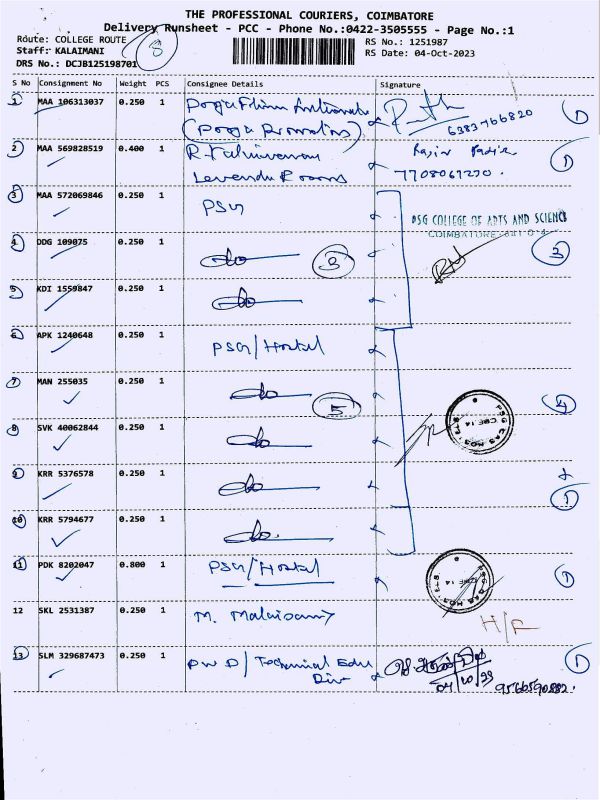 THE PROFESSIONAL COURIERS, COIMBATORE
Delivery Runsheet - PCC - Phone No.:0422-3505555 - Page No.:1
Route: COLLEGE ROUTE
Staff: KALAIMANI
DRS No.: DCJB125198701
8
RS No.: 1251987
RS Date: 04-Oct-2023
S No Consignment No Weight PCS Consignee Details Signature
1 MAA 106313037 0.250 1
6383766820 1
2 MAA 569828519 0.400 1
7708067270 1
3 MAA 572069846 0.250 1 PSG
PSG COLLEGE OF ARTS AND SCIENCE
COIMBATORE
4 DDG 109075 0.250 1 do 3 3
5 KDI 1559847 0.250 1 do
6 APK 1240648 0.250 1 PSG/Hostel
7 MAN 255035 0.250 1 do 5 4
8 SVK 40062844 0.250 1 do
9 KRR 5376578 0.250 1 do 1
10 KRR 5794677 0.250 1 do
11 PDK 8202047 0.800 1 PSG/Hostel 1
12 SKL 2531387 0.250 1 M. Malaisamy
13 SLM 329687473 0.250 1 PWD/Technical Edu 1
Div
04/10/23